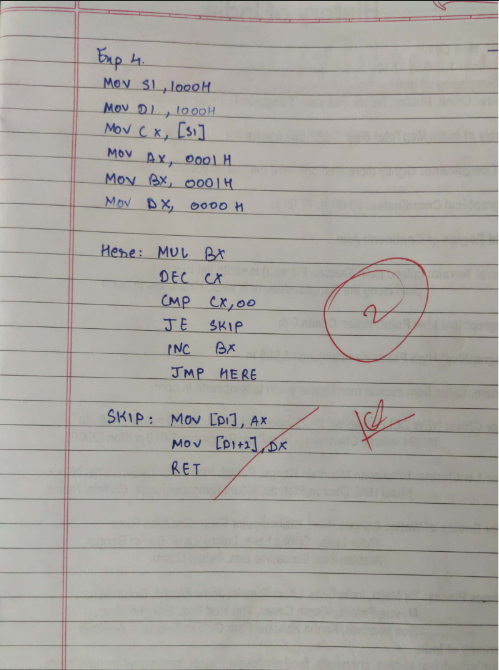 Exp 4.
MOV SI, 1000H
MOV DI, 1000H
MOV CX, [SI]
MOV AX, 0001H
MOV BX, 0001H
MOV DX, 0000H
Here: MUL BX
DEC CX
CMP CX,00
JE SKIP
INC BX
JMP HERE
2
SKIP: MOV [DI], AX
MOV [DI+2], DX
RET